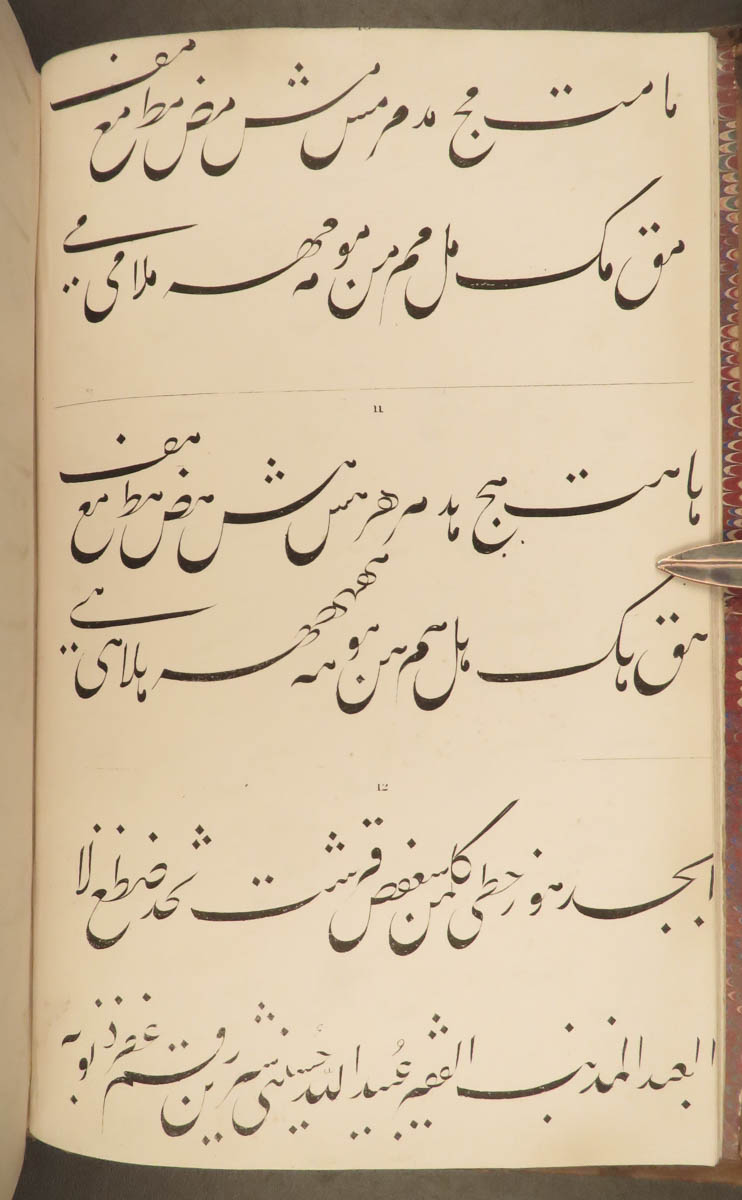 ما مت مج مد مر مس مش مص مط مع مف
مق مک مل مم من مو مه مهر ملا می مے
11
ها هت هج هد هر هر هس هش هص هط هع هف
هق هک هل هم هن هو هه ههر هلا هی هے
12
ابجد هوز حطی کلمن سعفص قرشت ثخذ ضظغ لا
العبد المذنب الفقیر عبید الله حسینی شیرین رقم غفر ذنوبه